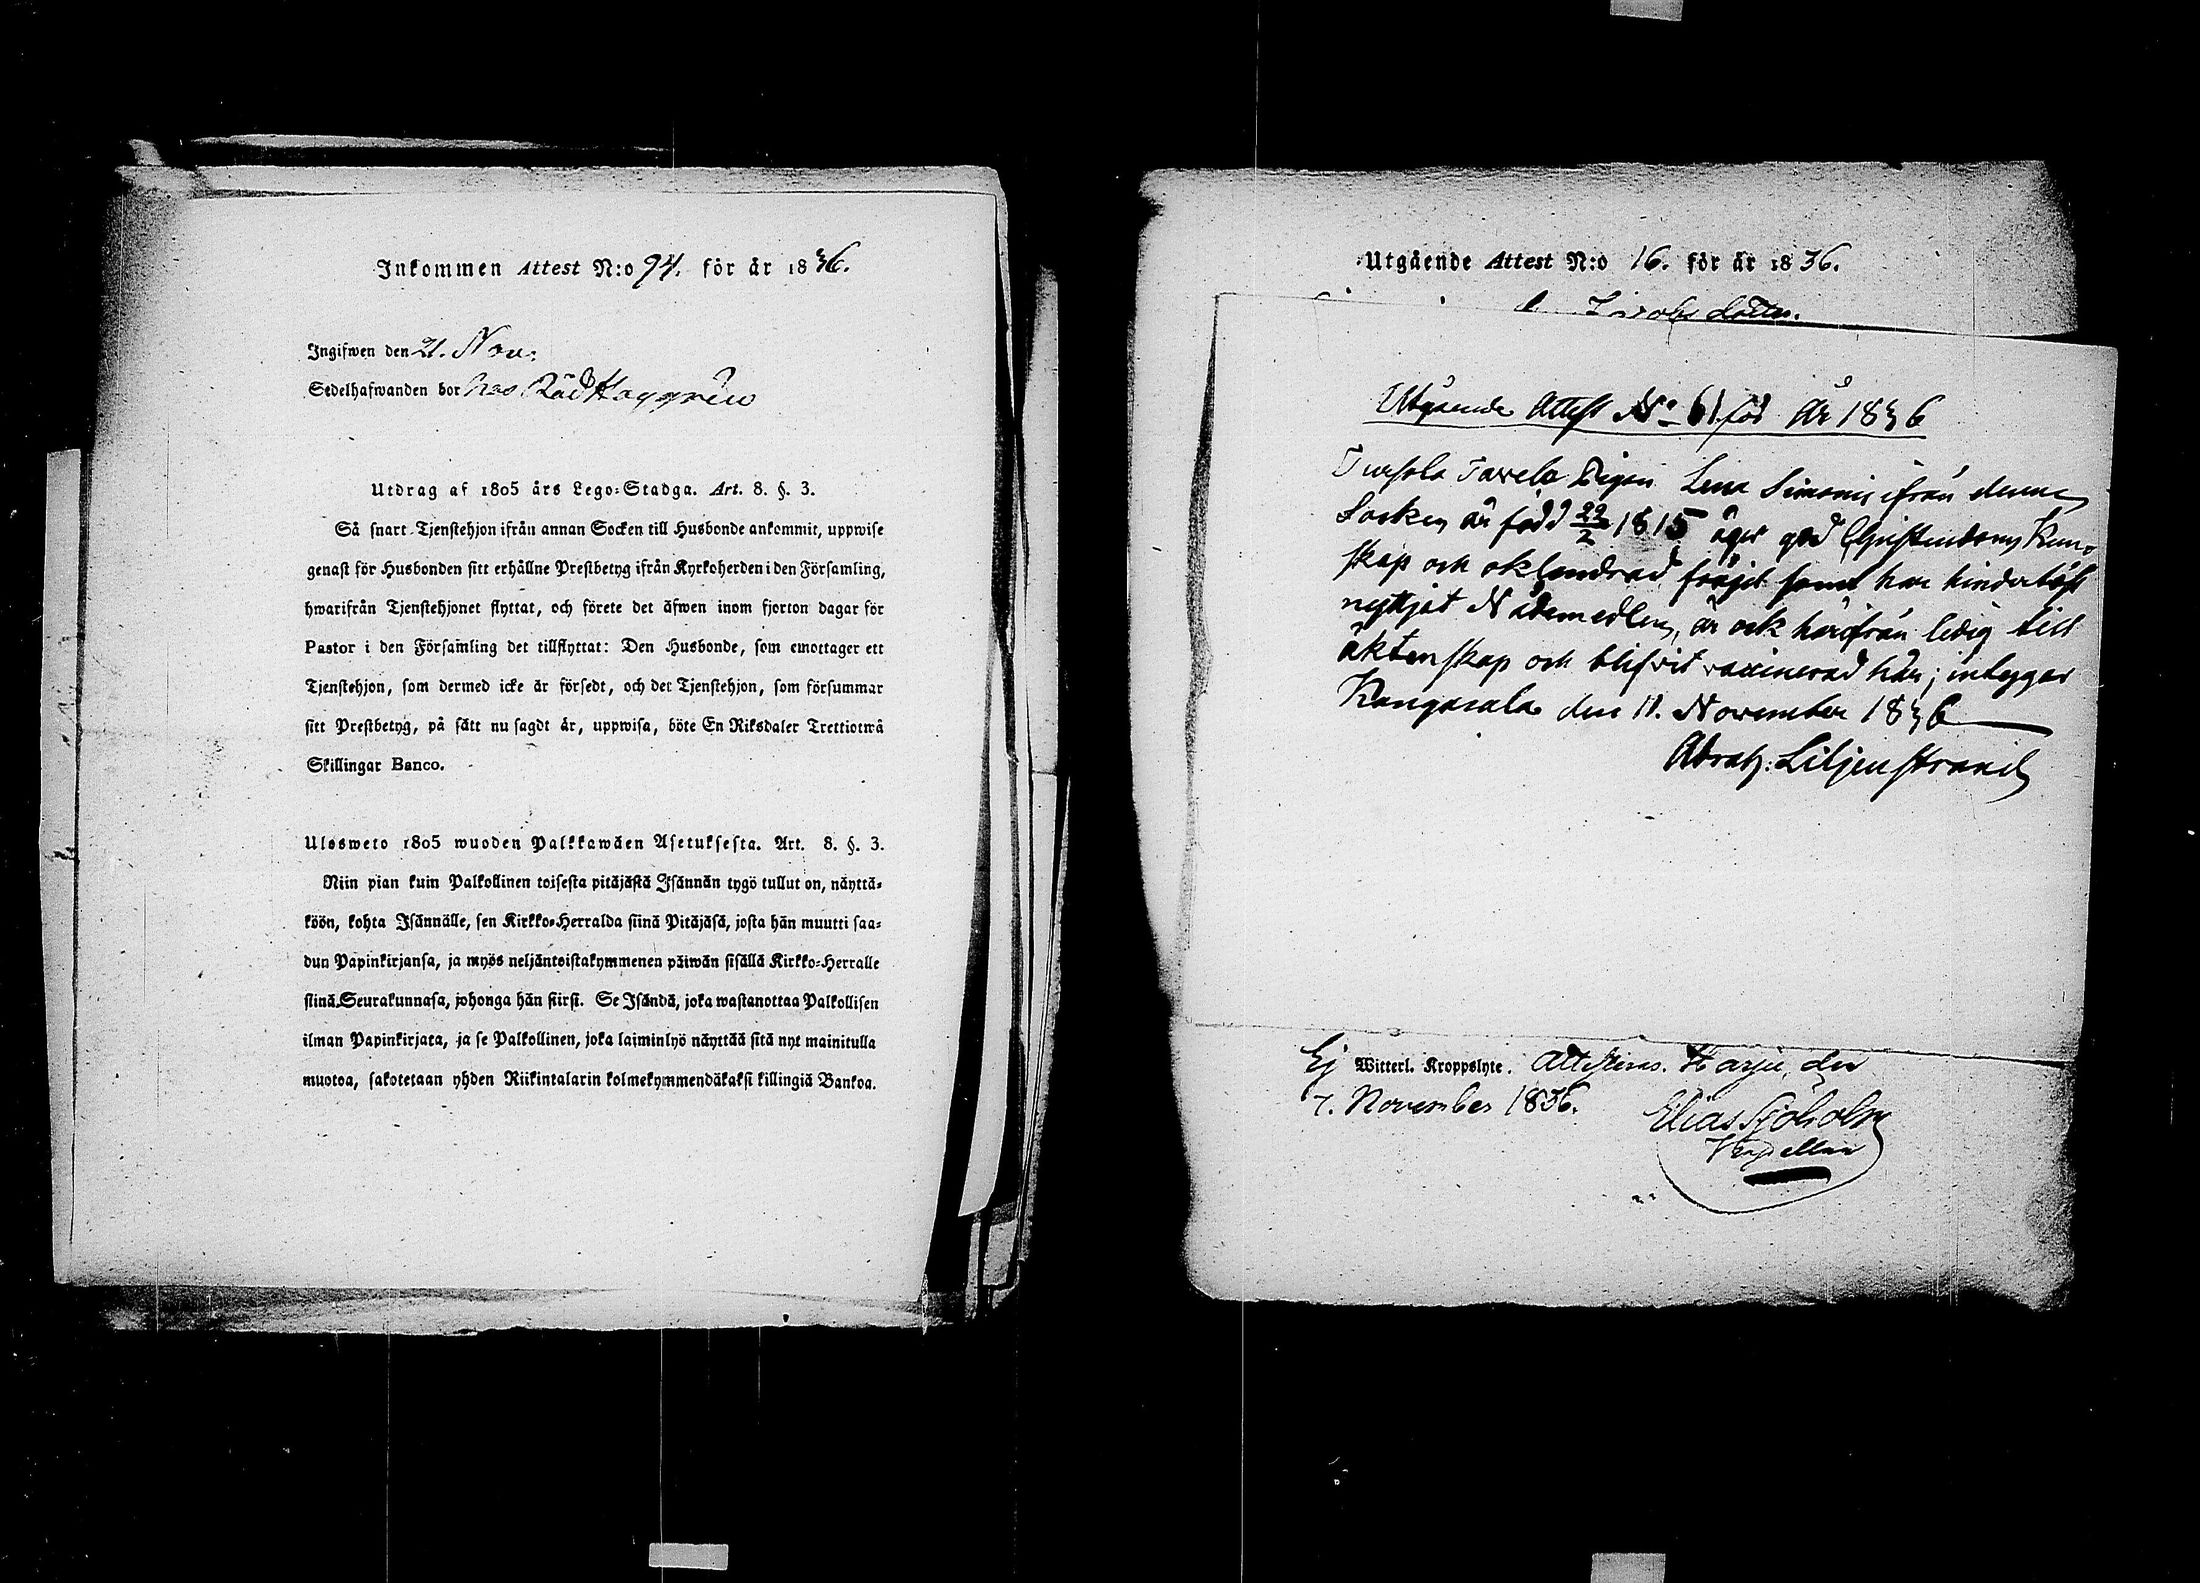 Inkommen Attest N:o 94. för år 1836.
Ingifwen den 21. Nov.
Sedelhafwanden bor hos Råd Haggrén
Utdrag af 1805 års Lego-Stadga. Art. 8. §. 3.
Så snart Tjenstehjon ifrån annan Socken till Husbonde ankommit, uppwise
genast för Husbonden sitt erhållne Prestbetyg ifrån Kyrkoherden i den Församling,
hwarifrån Tjenstehjonet flyttat, och förete det äfwen inom fjorton dagar för
Pastor i den Församling det tillflyttat: Den Husbonde, som emottager ett
Tjenstehjon, som dermed icke är försedt, och det Tjenstehjon, som försummar
sitt Prestbetyg, på sätt nu sagdt är, uppwisa, böte En Riksdaler Trettiotwå
Skillingar Banco.
Ulosweto 1805 wuoden Palkkawäen Asetuksesta. Art. 8. §. 3.
Niin pian kuin Palkollinen toisesta pitäjästä Isännän tygö tullut on, näyttä-
köön, kohta Isännälle, sen Kirkko-Herralda siinä Pitäjäsä, josta hän muutti saa-
dun Papinkirjansa, ja myös neljäntoistakymmenen päiwän sisällä Kirkko-Herralle
siinä Seurakunnasa, johonga hän siirsi. Se Isändä, joka wastanottaa Palkollisen
ilman Papinkirjata, ja se Palkollinen, joka laiminlyö näyttää sitä nyt mainitulla
muotoa, sakotetaan yhden Riikintalarin kolmekymmendäkaksi killingiä Bankoa.
Utgående Attest N:o 16. för år 1836.
Jacobs dotter.
Utgående Attest No 61 för År 1836
Tursola Tavela Pigan Lena Simonis ifrån denna
Socken är född 22/2 1815 äger god Christendoms Kun-
skap och oklandrad fräjd samt har hinderlöst
nyttjat Nådemedlen, är ock härifrån ledig till
äktenskap och blifvit vaccinerad här; intygar
Kangasala den 11. November 1836
Abrah: Liljenstrand
Ej Witterl. Kroppslyte. Attesteras. Harju, den
7. November 1836.
Elias Sjöholm
Kapellan